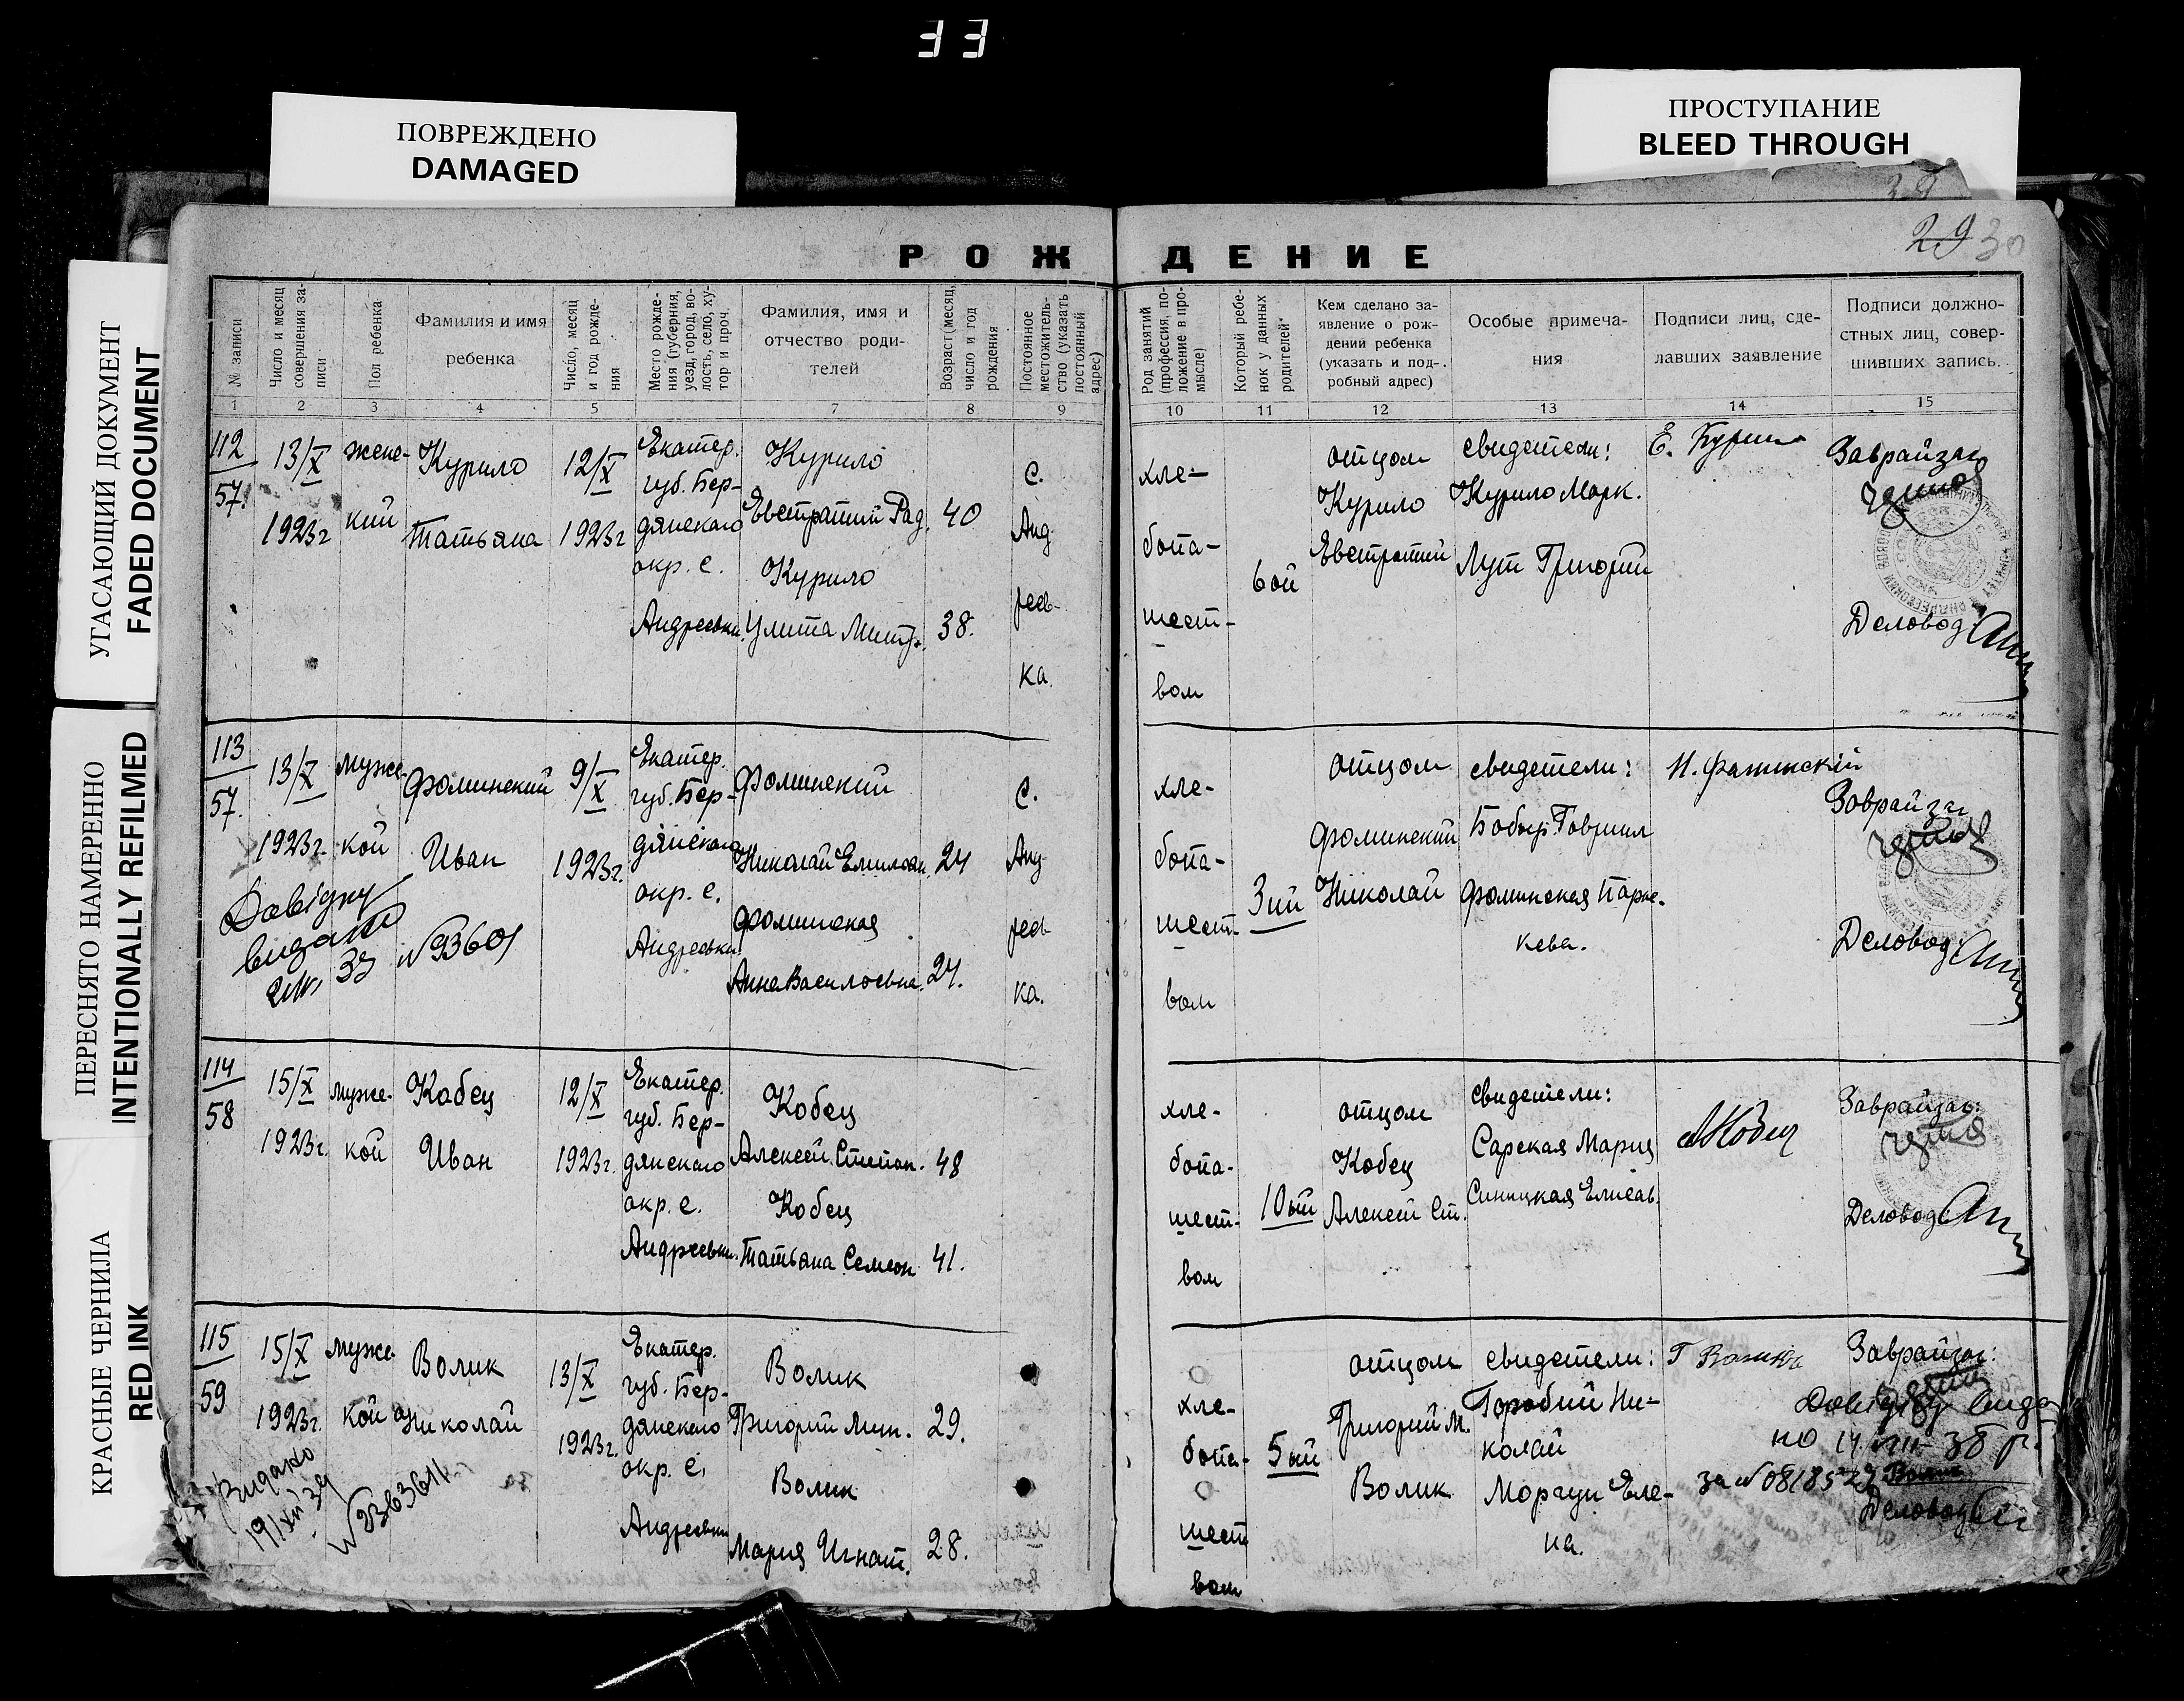 33
ПОВРЕЖДЕНО
DAMAGED
ПРОСТУПАНИЕ
BLEED THROUGH
УГАСАЮЩИЙ ДОКУМЕНТ
FADED DOCUMENT
ПЕРЕСНЯТО НАМЕРЕННО
INTENTIONALLY REFILMED
КРАСНЫЕ ЧЕРНИЛА
RED INK
29 30
РОЖДЕНИЕ
№ записи
Число и месяц
совершения за-
писи
Пол ребенка
Фамилия и имя
ребенка
Число, месяц
и год рожде-
ния
Место рожде-
ния (губерния,
уезд, город, во-
лость, село, ху-
тор и проч.
Фамилия, имя и
отчество роди-
телей
Возраст (месяц,
число и год
рождения
Постоянное
местожитель-
ство (указать
постоянный
адрес)
Род занятий
(профессия, по-
ложение в про-
мысле)
Который ребе-
нок у данных
родителей
Кем сделано за-
явление о рож-
дении ребенка
(указать и под-
робный адрес)
Особые примеча-
ния
Подписи лиц, сде-
лавших заявление
Подписи должно-
стных лиц, совер-
шивших запись.
1 2 3 4 5 7 8 9 10 11 12 13 14 15
112
57.
13/X
1923г
женс-
кий
Курило
Татьяна
12/X
1923г
Екатер.
губ. Бер-
дянского
окр. с.
Андреевки.
Курило
Евстратий Рад. 40
Курило
Улита Митр. 38.
с.
Анд
реев-
ка.
хле-
бопа-
шест-
вом
6ой
отцом
Курило
Евстратий
свидетели:
Курило Марк.
Лут Григорий
Е. Курило
Заврайзаг
Деловод.
113
57.
13/X
1923г.
мужс-
кой
Фоминский
Иван
9/X
1923г.
Екатер.
губ. Бер-
дянского
окр. с.
Андреевки.
Фоминский
Николай Емильян. 24
Фоминская
Анна Василевна. 24.
с.
Анд
реев
ка.
хле-
бопа-
шест-
вом
3ий
отцом
Фоминский
Николай
свидетели:
Бобыр Гавриил
Фоминская Парас-
кева.
Н. Фаминскій
Заврайзаг
Деловод.
Довідку
видано
33 №93601
114
58
15/X
1923г.
мужс-
кой
Кобец
Иван
12/X
1923г.
Екатер.
губ. Бер-
дянского
окр. с.
Андреевки.
Кобец
Алексей Степан. 48
Кобец
Татьяна Семеон 41.
хле-
бопа-
шест-
вом
10ый
отцом
Кобец
Алексей Ст.
свидетели:
Сарская Мария
Синицкая Елисав.
А Кобец
Заврайзаг.
Деловод
115
59
15/X
1923г.
мужс
кой
Волик
Николай
13/X
1923г.
Екатер.
губ. Бер-
дянского
окр. с.
Андреевки
Волик
Григорий Мин. 29.
Волик
Мария Игнат. 28.
хле-
бопа-
шест
вом
5ый
отцом
Григорий М.
Волик
свидетели:
Горобий Ни-
колай
Моргун Еле-
на.
Г Воликъ
Заврайзаг:
Довідку вида
но 14 VIII 38 р.
за №
Деловод
Видано